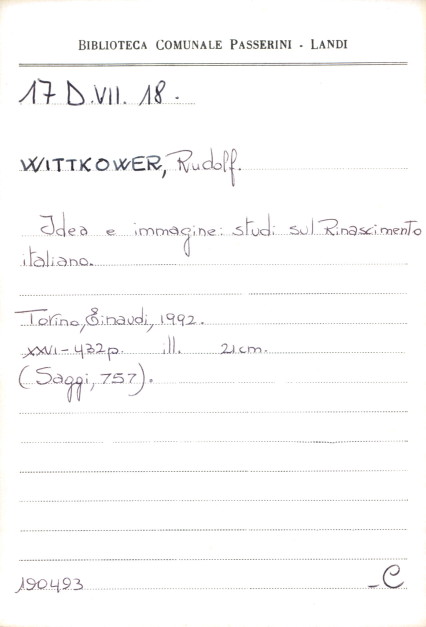 BIBLIOTECA COMUNALE PASSERINI - LANDI
17 D.VII. 18.
WITTKOWER, Rudolf.
Idea e immagine: studi sul Rinascimento
italiano.
Torino, Einaudi, 1992.
XXVI-432p. ill. 21cm.
(Saggi, 757).
190493 -C